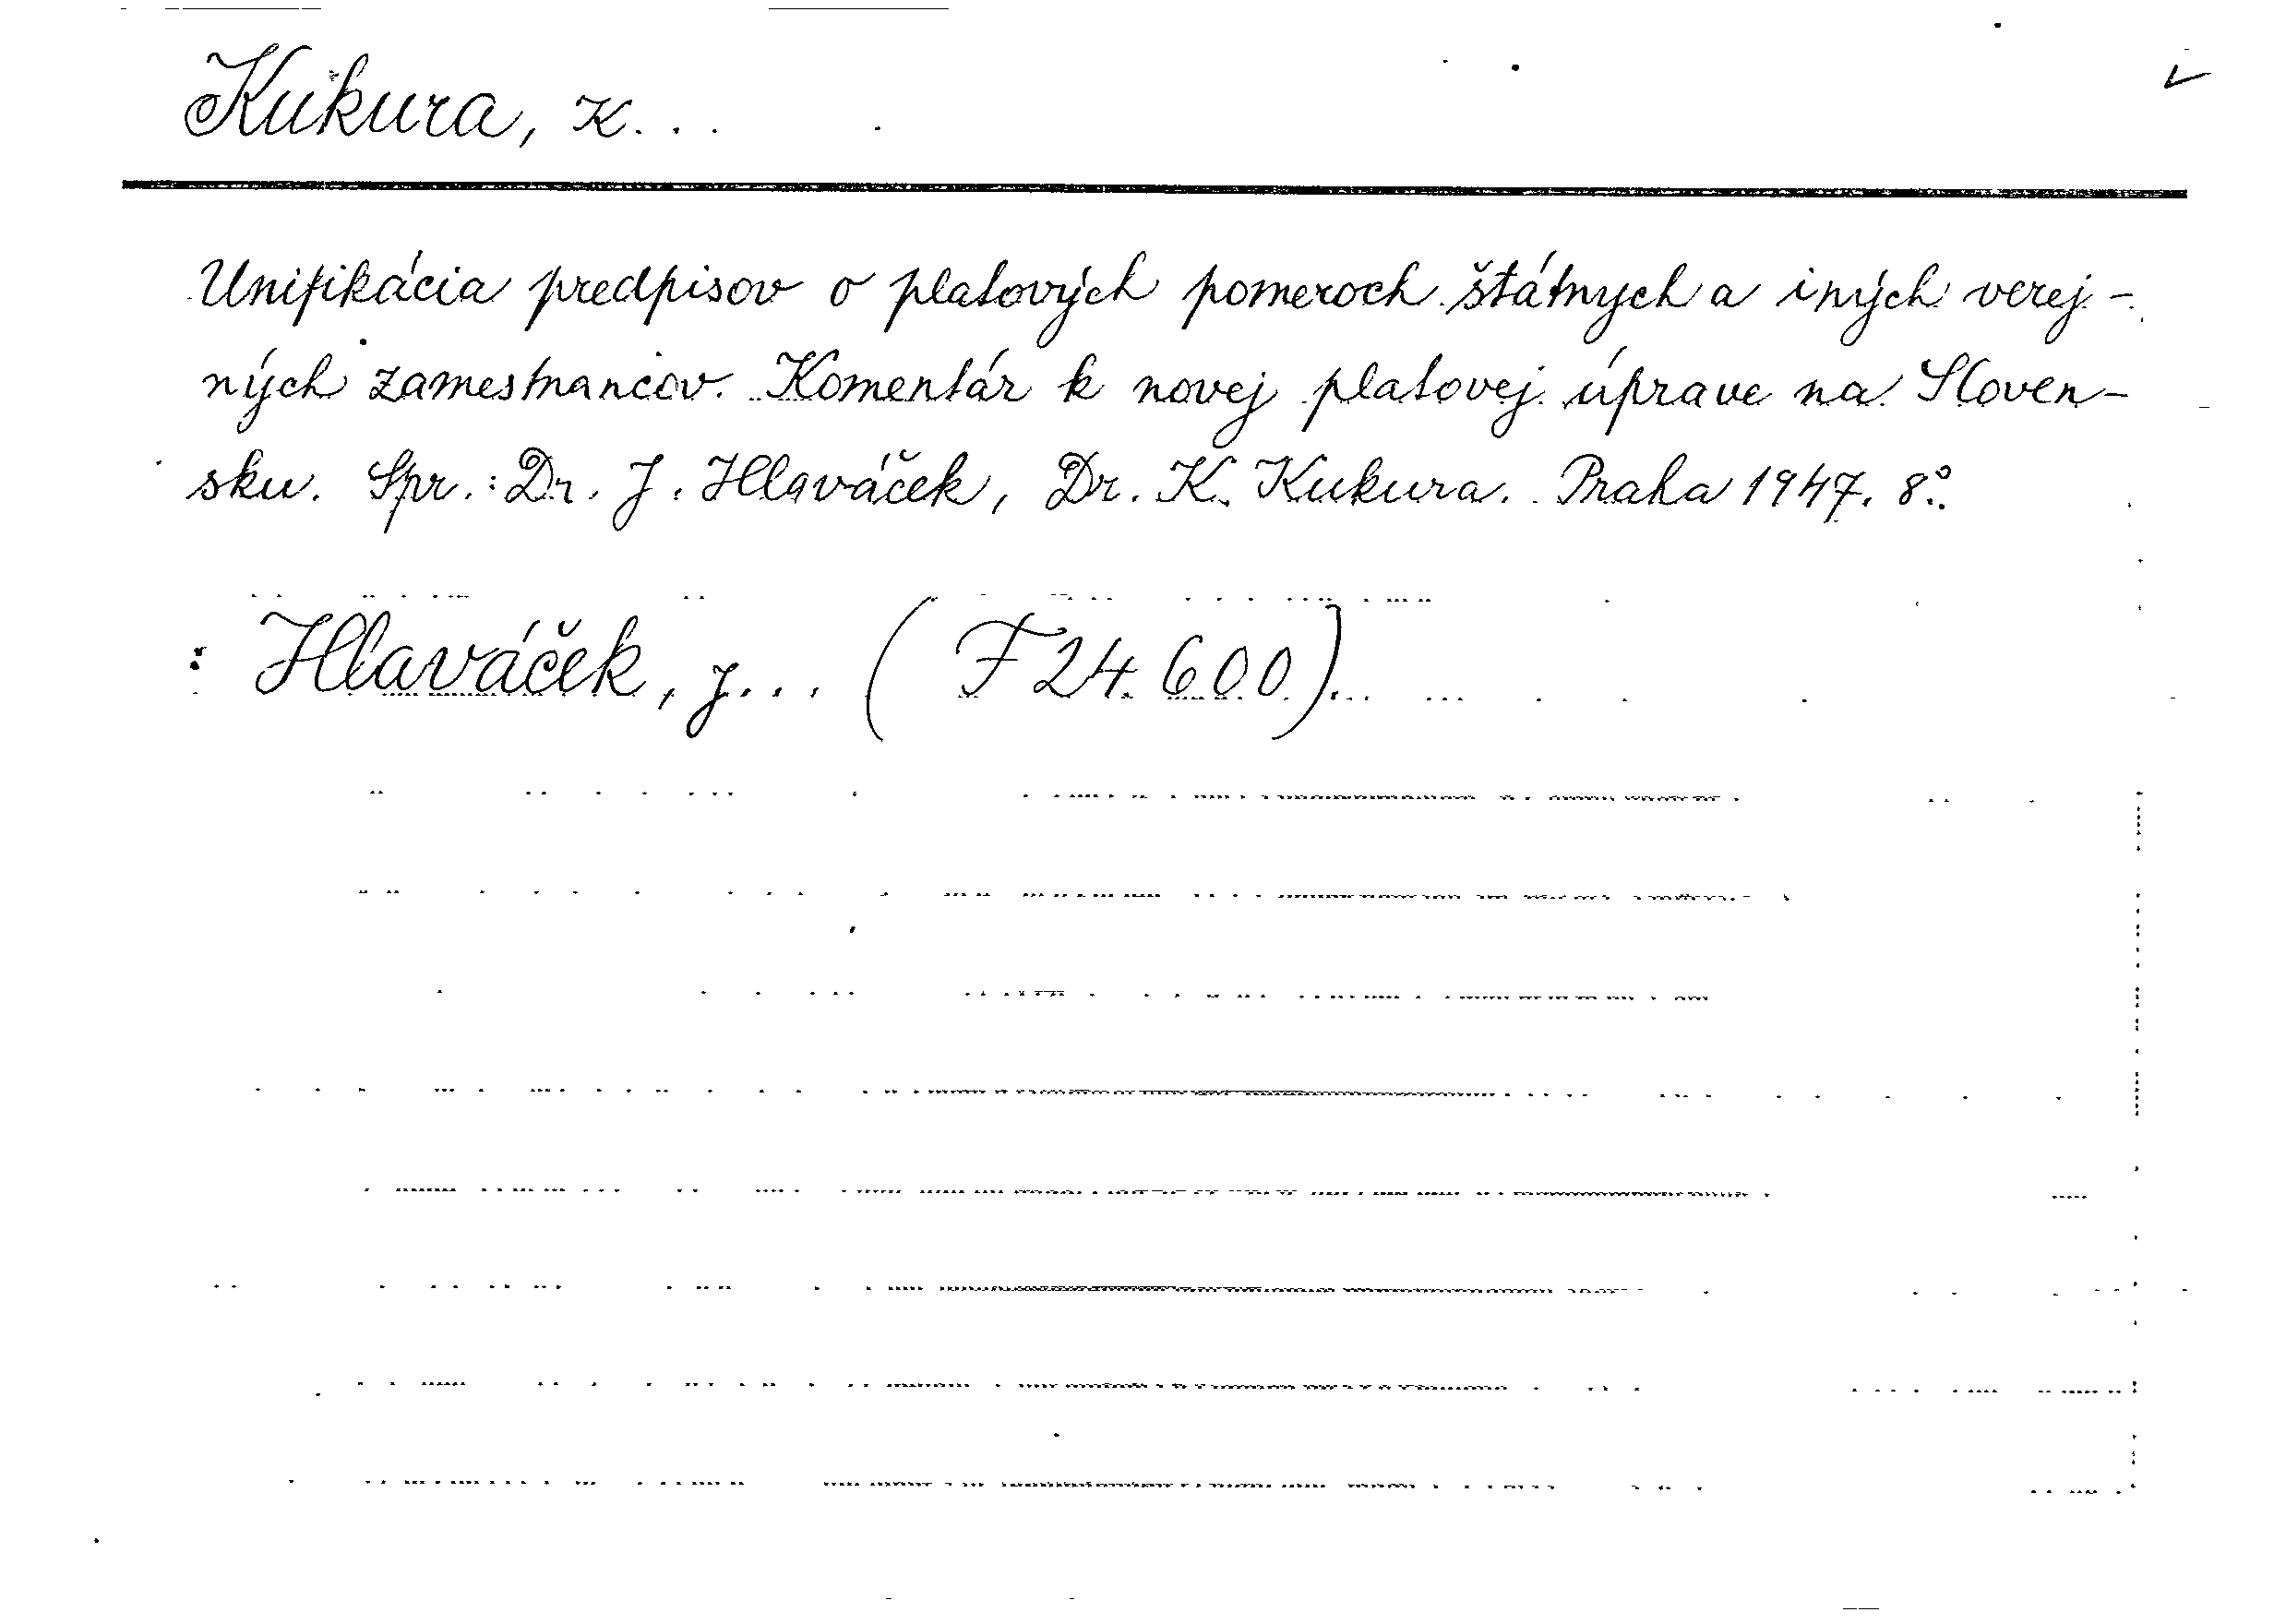 Kukura, K...
Unifikácia predpisov o platových pomeroch štátnych a iných verej-
ných zamestnancov. Komentár k novej platovej úprave na Sloven-
sku. Spr.: Dr. J. Hlaváček, Dr. K. Kukura. Praha 1947. 8°.
: Hlaváček, J... (F 24.600)